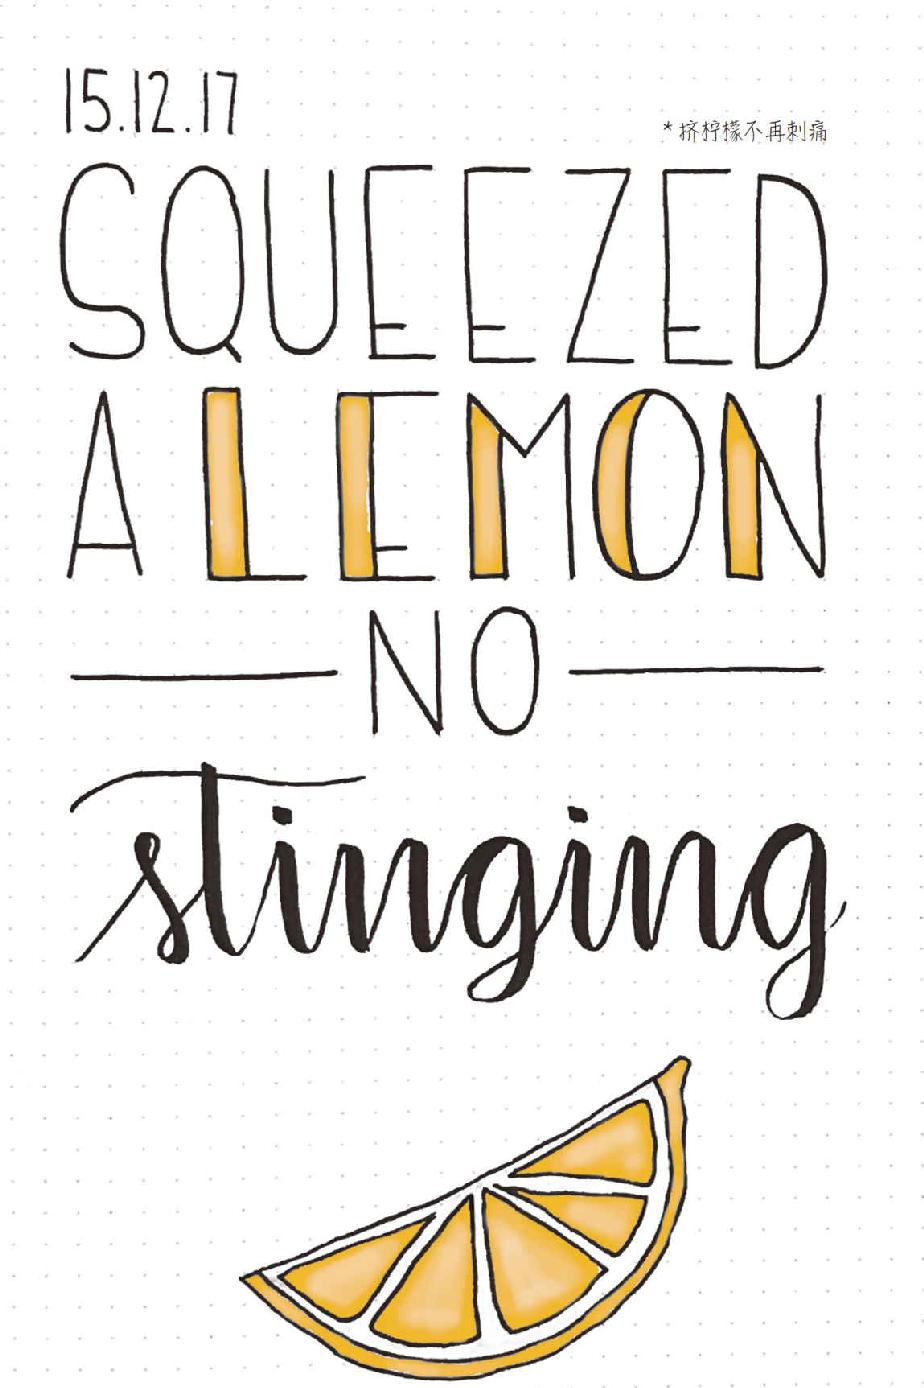 15.12.17
*挤柠檬不再刺痛
SQUEEZED
A LEMON
NO
stinging